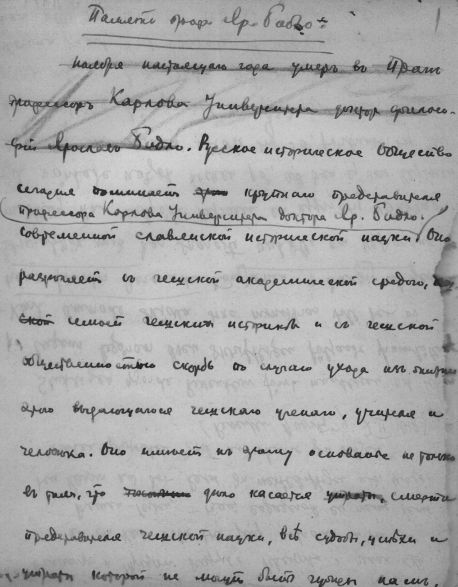 Памяти проф. Яр. Бидло.
1
ноября настоящаго года умеръ въ Прагѣ
профессоръ Карлова Университета докторъ филосо-
фіи Ярославъ Бидло. Русское историческое общество
сегодня поминаетъ крупнаго представителя
профессора Карлова Университета доктора Яр. Бидло.
современной славянской исторической науки. Оно
раздѣляетъ съ чешской академической средой,
ской семьей чешских историковъ и съ чешской
общественностью скорбь по случаю ухода изъ
этого выдающагося чешскаго ученаго, учителя и
человѣка. Оно имѣетъ къ этому основаніе не только
въ томъ, что дѣло касается утраты, смерти
представителя чешской науки, всѣ судьбы, успѣхи и
утраты которой не могутъ быть чужды намъ,